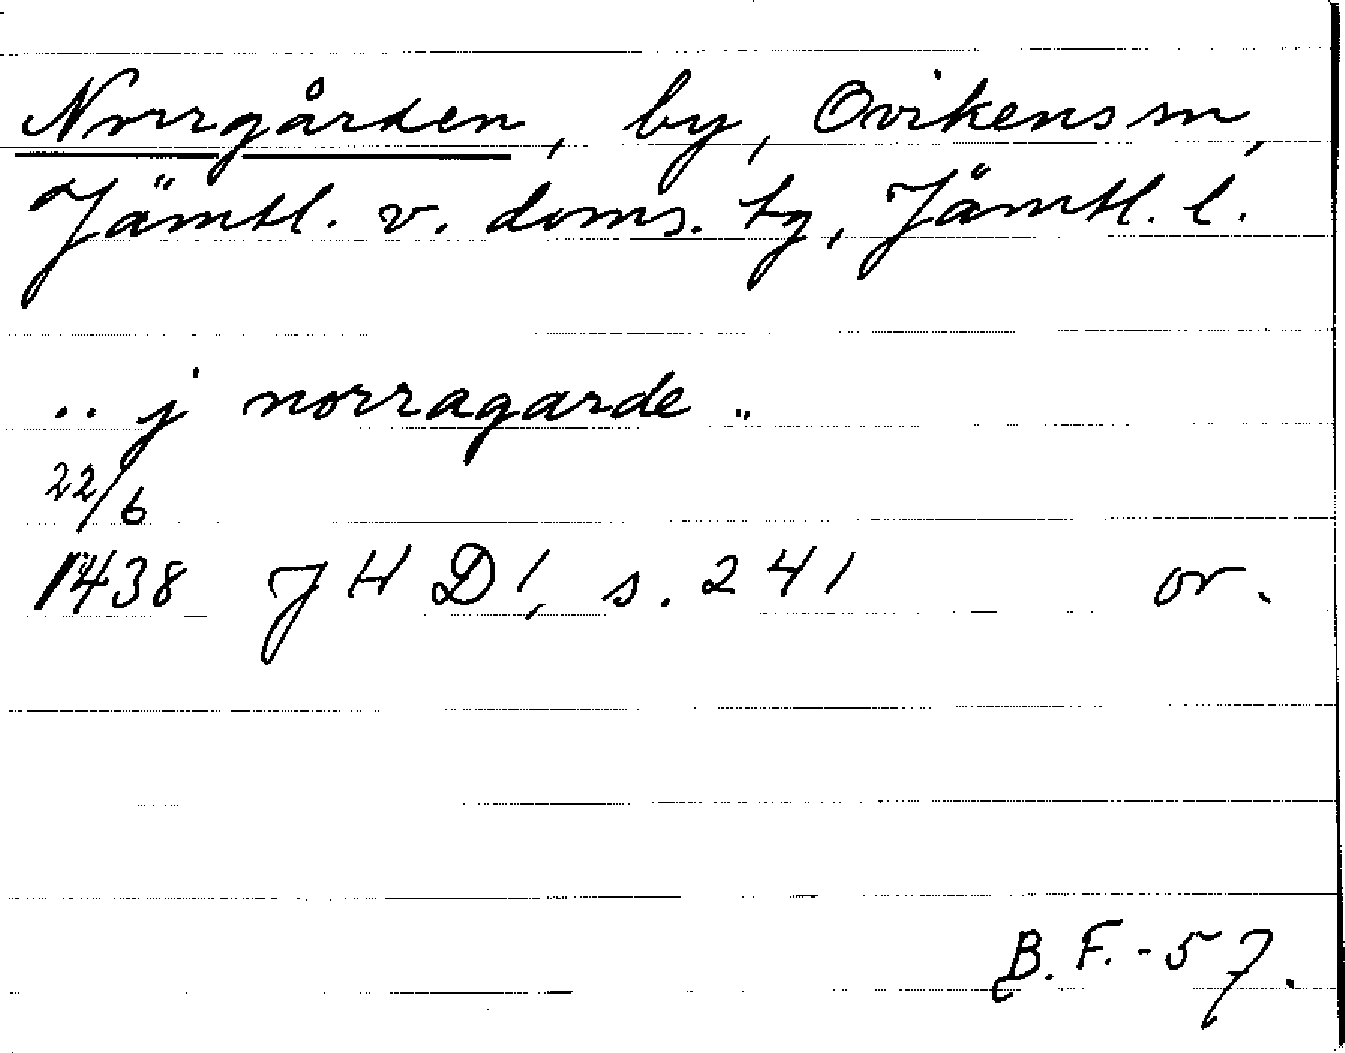 Norrgården, by, Ovikens sn,
Jämtl. v. doms. tg, Jämtl. l.
.. j norragarde ..
22/6
1438 J H D 1, s. 241 or.
B. F. - 57.